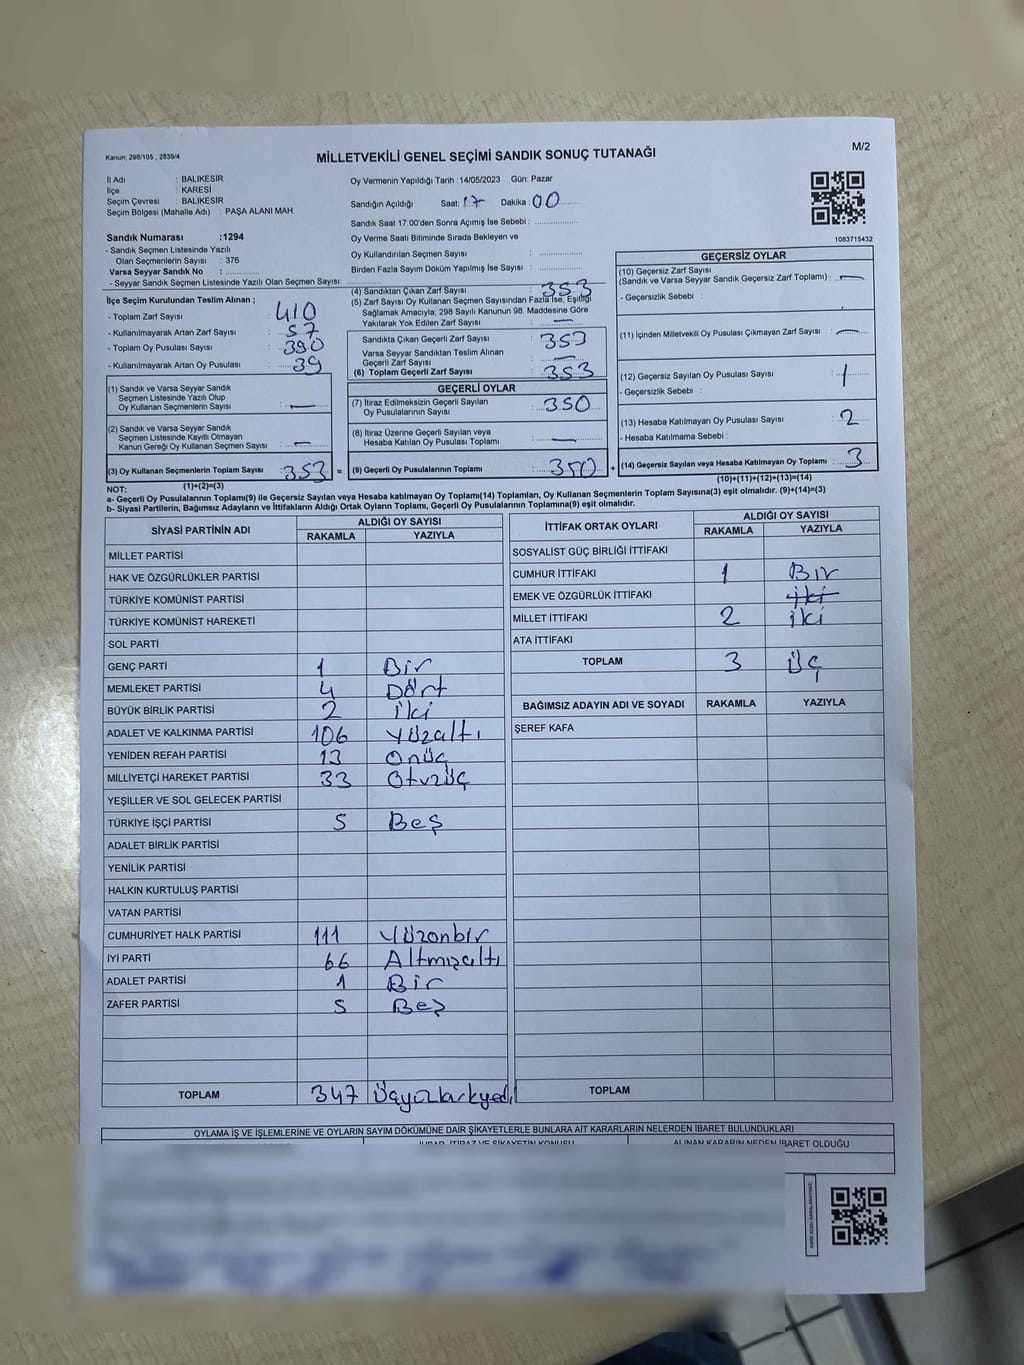 Kanun: 298/105 , 2839/4
MİLLETVEKİLİ GENEL SEÇİMİ SANDIK SONUÇ TUTANAĞI
M/2
İl Adı : BALIKESİR
İlçe : KARESİ
Seçim Çevresi : BALIKESİR
Seçim Bölgesi (Mahalle Adı) : PAŞA ALANI MAH
Oy Vermenin Yapıldığı Tarih :14/05/2023 Gün: Pazar
Sandığın Açıldığı Saat: 17 Dakika: 00
Sandık Saat 17:00'den Sonra Açmış İse Sebebi :
Oy Verme Saati Bitiminde Sırada Bekleyen ve
Oy Kullandırılan Seçmen Sayısı :
Birden Fazla Sayım Döküm Yapılmış İse Sayısı :
1083715432
Sandık Numarası :1294
- Sandık Seçmen Listesinde Yazılı
Olan Seçmenlerin Sayısı : 376
Varsa Seyyar Sandık No :
- Seyyar Sandık Seçmen Listesinde Yazılı Olan Seçmen Sayısı:
İlçe Seçim Kurulundan Teslim Alınan ;
- Toplam Zarf Sayısı : 410
- Kullanılmayarak Artan Zarf Sayısı : 57
- Toplam Oy Pusulası Sayısı : 390
- Kullanılmayarak Artan Oy Pusulası : 39
(1) Sandık ve Varsa Seyyar Sandık
Seçmen Listesinde Yazılı Olup
Oy Kullanan Seçmenlerin Sayısı : —
(2) Sandık ve Varsa Seyyar Sandık
Seçmen Listesinde Kayıtlı Olmayan
Kanun Gereği Oy Kullanan Seçmen Sayısı : —
(3) Oy Kullanan Seçmenlerin Toplam Sayısı : 353 =
(1)+(2)=(3)
(4) Sandıktan Çıkan Zarf Sayısı : 353
(5) Zarf Sayısı Oy Kullanan Seçmen Sayısından Fazla İse, Eşitliği
Sağlamak Amacıyla, 298 Sayılı Kanunun 98. Maddesine Göre
Yakılarak Yok Edilen Zarf Sayısı : —
Sandıkta Çıkan Geçerli Zarf Sayısı : 353
Varsa Seyyar Sandıktan Teslim Alınan
Geçerli Zarf Sayısı : —
(6) Toplam Geçerli Zarf Sayısı : 353
GEÇERLİ OYLAR
(7) İtiraz Edilmeksizin Geçerli Sayılan
Oy Pusulalarının Sayısı : 350
(8) İtiraz Üzerine Geçerli Sayılan veya
Hesaba Katılan Oy Pusulası Toplamı : —
(9) Geçerli Oy Pusulalarının Toplamı : 350 +
GEÇERSİZ OYLAR
(10) Geçersiz Zarf Sayısı
(Sandık ve Varsa Seyyar Sandık Geçersiz Zarf Toplamı) : —
- Geçersizlik Sebebi :
(11) İçinden Milletvekili Oy Pusulası Çıkmayan Zarf Sayısı : —
(12) Geçersiz Sayılan Oy Pusulası Sayısı : 1
- Geçersizlik Sebebi :
(13) Hesaba Katılmayan Oy Pusulası Sayısı : 2
- Hesaba Katılmama Sebebi :
(14) Geçersiz Sayılan veya Hesaba Katılmayan Oy Toplamı : 3
(10)+(11)+(12)+(13)=(14)
NOT:
a- Geçerli Oy Pusulalarının Toplamı(9) ile Geçersiz Sayılan veya Hesaba katılmayan Oy Toplamı(14) Toplamları, Oy Kullanan Seçmenlerin Toplam Sayısına(3) eşit olmalıdır. (9)+(14)=(3)
b- Siyasi Partilerin, Bağımsız Adayların ve İttifakların Aldığı Ortak Oyların Toplamı, Geçerli Oy Pusulalarının Toplamına(9) eşit olmalıdır.
SİYASİ PARTİNİN ADI ALDIĞI OY SAYISI
RAKAMLA YAZIYLA
MİLLET PARTİSİ
HAK VE ÖZGÜRLÜKLER PARTİSİ
TÜRKİYE KOMÜNİST PARTİSİ
TÜRKİYE KOMÜNİST HAREKETİ
SOL PARTİ
GENÇ PARTİ 1 Bir
MEMLEKET PARTİSİ 4 Dört
BÜYÜK BİRLİK PARTİSİ 2 iki
ADALET VE KALKINMA PARTİSİ 106 Yüzaltı
YENİDEN REFAH PARTİSİ 13 Onüç
MİLLİYETÇİ HAREKET PARTİSİ 33 Otuzüç
YEŞİLLER VE SOL GELECEK PARTİSİ
TÜRKİYE İŞÇİ PARTİSİ 5 Beş
ADALET BİRLİK PARTİSİ
YENİLİK PARTİSİ
HALKIN KURTULUŞ PARTİSİ
VATAN PARTİSİ
CUMHURİYET HALK PARTİSİ 111 Yüzonbir
İYİ PARTİ 66 Altmışaltı
ADALET PARTİSİ 1 Bir
ZAFER PARTİSİ 5 Beş
TOPLAM 347
İTTİFAK ORTAK OYLARI ALDIĞI OY SAYISI
RAKAMLA YAZIYLA
SOSYALİST GÜÇ BİRLİĞİ İTTİFAKI
CUMHUR İTTİFAKI 1 Bir
EMEK VE ÖZGÜRLÜK İTTİFAKI iki
MİLLET İTTİFAKI 2 iki
ATA İTTİFAKI
TOPLAM 3 Üç
BAĞIMSIZ ADAYIN ADI VE SOYADI RAKAMLA YAZIYLA
ŞEREF KAFA
TOPLAM
OYLAMA İŞ VE İŞLEMLERİNE VE OYLARIN SAYIM DÖKÜMÜNE DAİR ŞİKAYETLERLE BUNLARA AİT KARARLARIN NELERDEN İBARET BULUNDUKLARI
ALINAN KARARIN NEDEN İBARET OLDUĞU